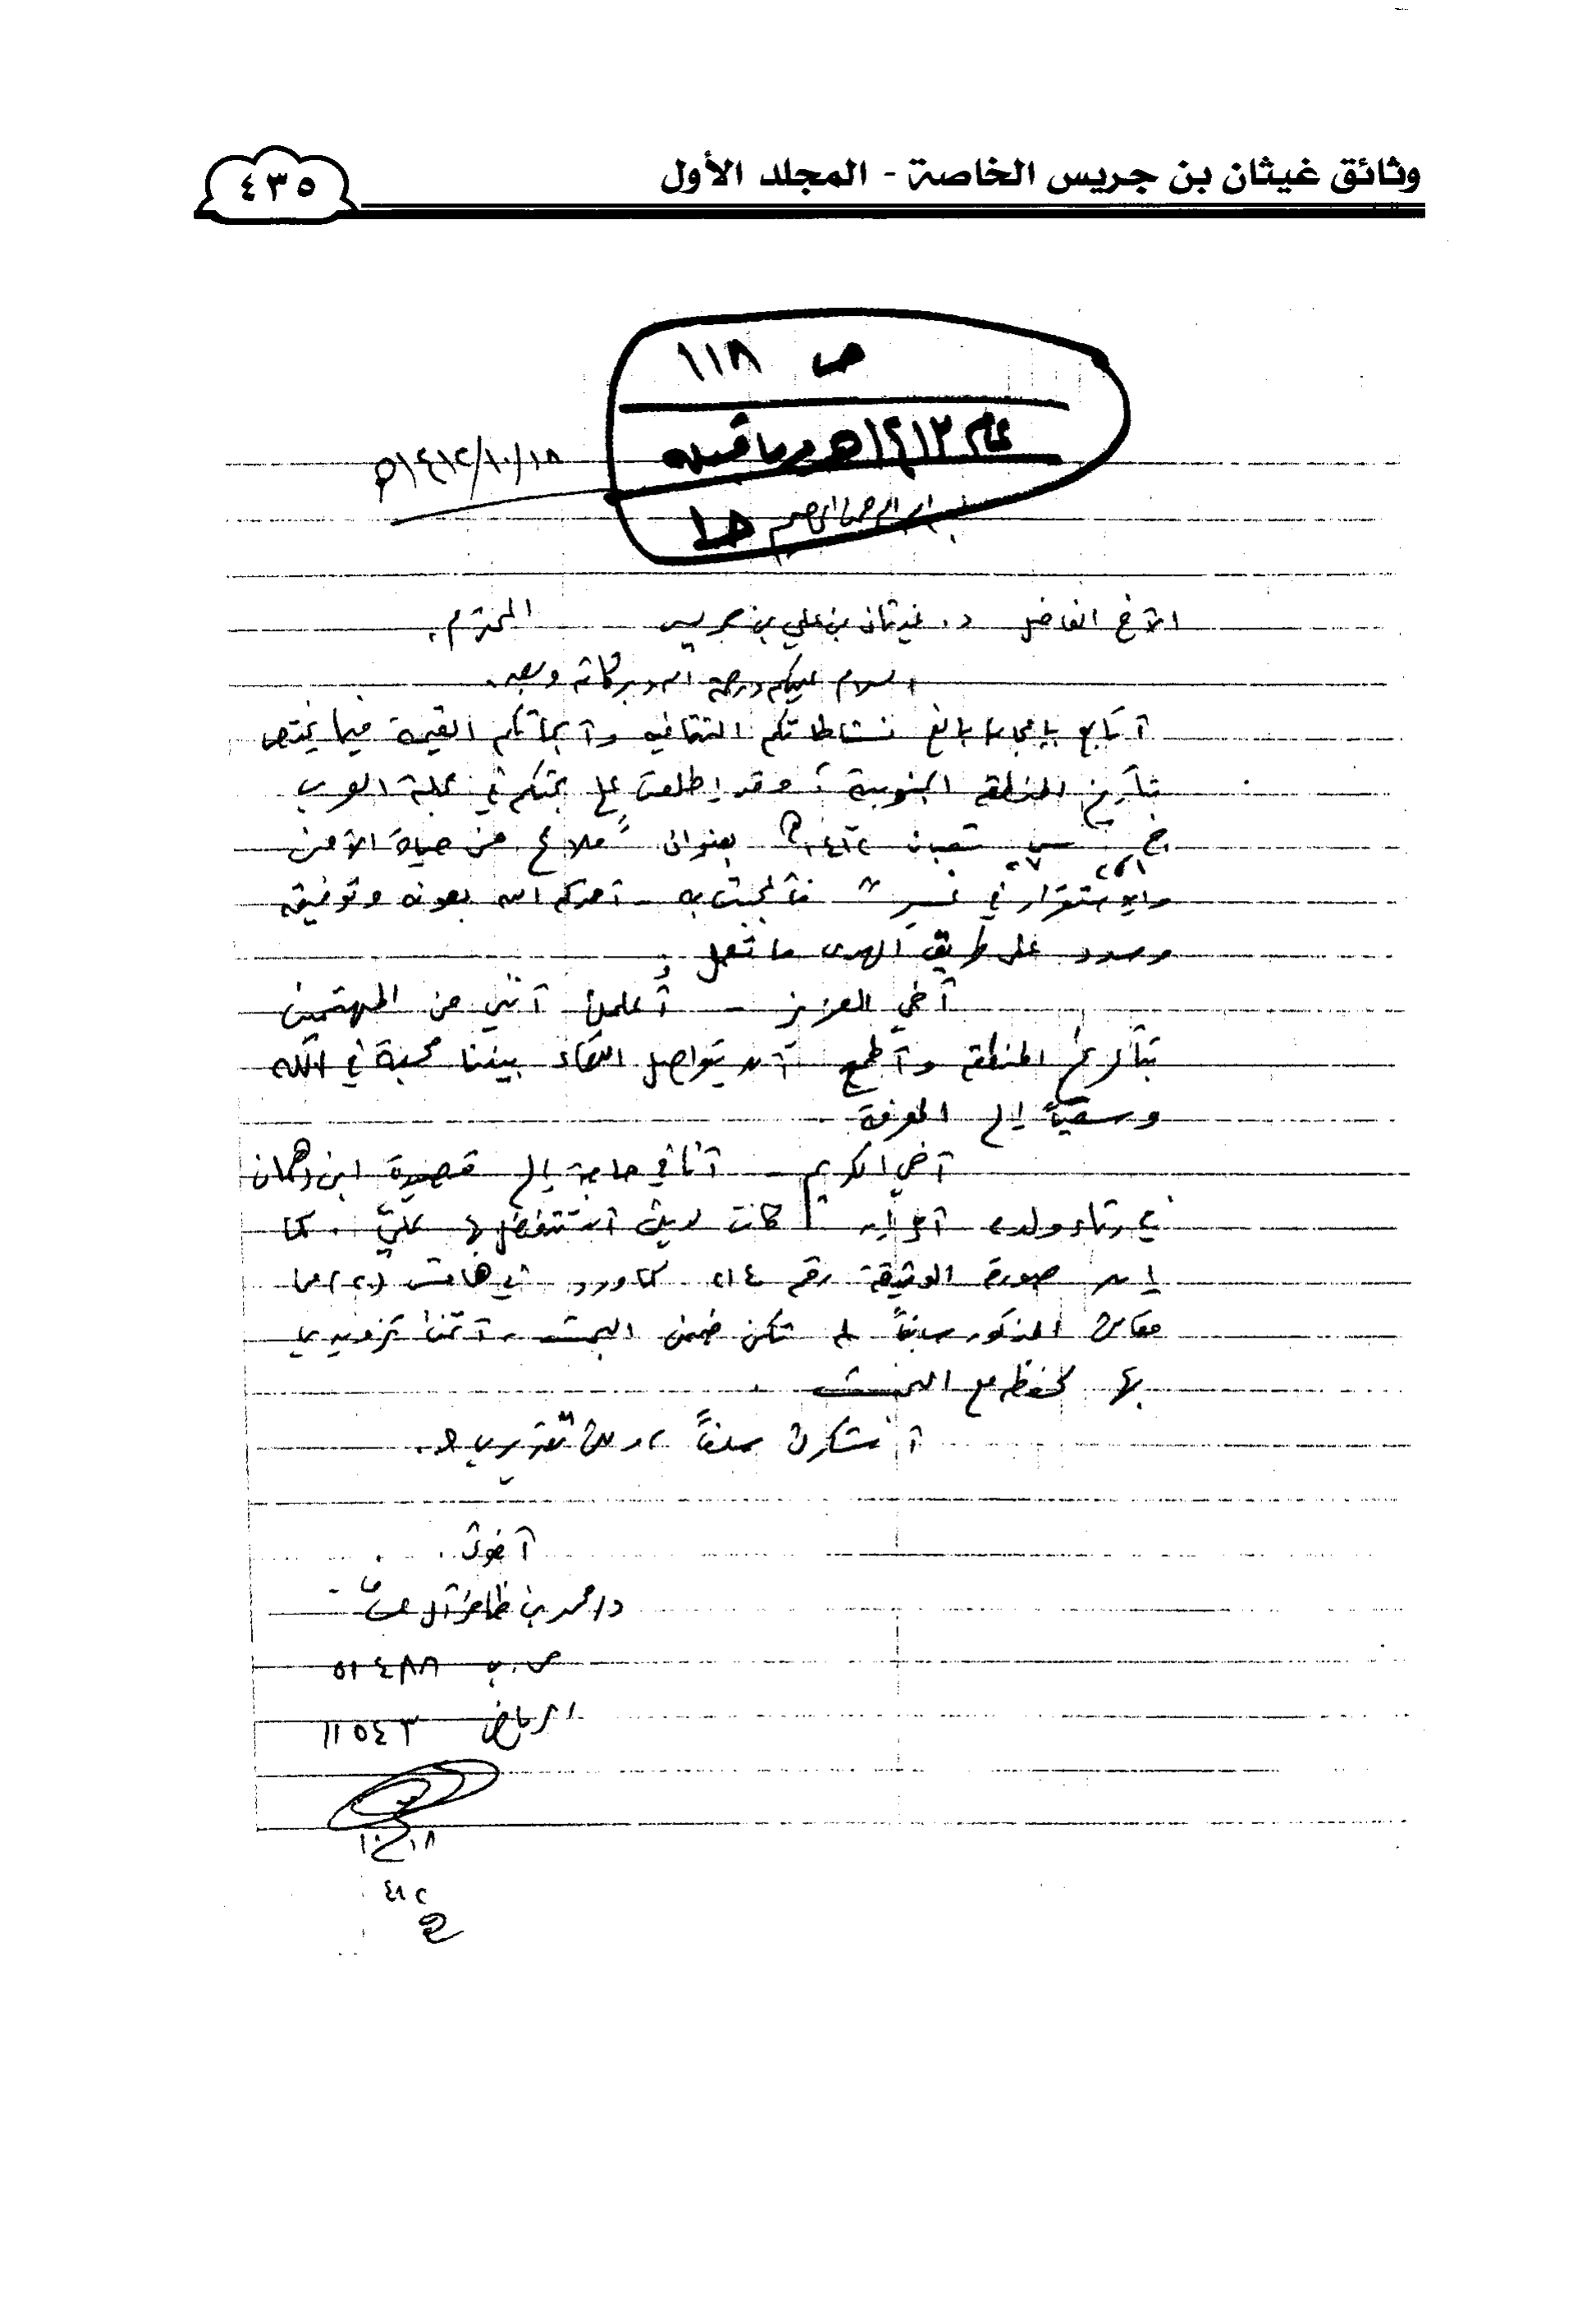 وثائق غيثان بن جريس الخاصة - المجلد الأول
٤٣٥
ص ١١٨
عام ١٤١٣هـ وما قبله
١٤١٢/١٠/١٨هـ
بسم الله الرحمن الرحيم
الأخ الفاضل د. غيثان بن علي بن جريس المحترم،
السلام عليكم ورحمة الله وبركاته وبعد،
أتابع بإعجاب بالغ نشاطاتكم الثقافية وأبحاثكم القيمة فيما يختص
بتأريخ المنطقة الجنوبية، وقد اطلعت على بحثكم في مجلة العرب
ج س ٢٧ شعبان ١٤١٢هـ بعنوان "ملامح من حياة الأمن
والاستقرار في عسير" فأعجبت به - أمدكم الله بعونه وتوفيقه
وسدد على طريق الهدى ما تعمل.
أخي العزيز - أعلمك أنني من المهتمين
بتأريخ المنطقة وأطمح أن يتواصل اللقاء بيننا محبة في الله
وسعياً إلى المعرفة
أخي الكريم - أنا في حاجة إلى قصيدة ابن دهمان
في رثاء ولده إذا كانت لديك أن تتفضل بها عليّ. كما
إن صورة الوثيقة رقم ٢١٤ كما ورد في هامش (٢٠) من
مقالك المذكور سابقاً لم تكن ضمن البحث، أتمنى تزويدي
بها لحفظه مع البحث.
أشكرك سلفاً، ولك تقديري.
أخوك
د/محمد بن ظافر آل
ص.ب ٥١٤٨٨
الرياض ١١٥٤٣
١٠/١٨
٤١٢
هـ